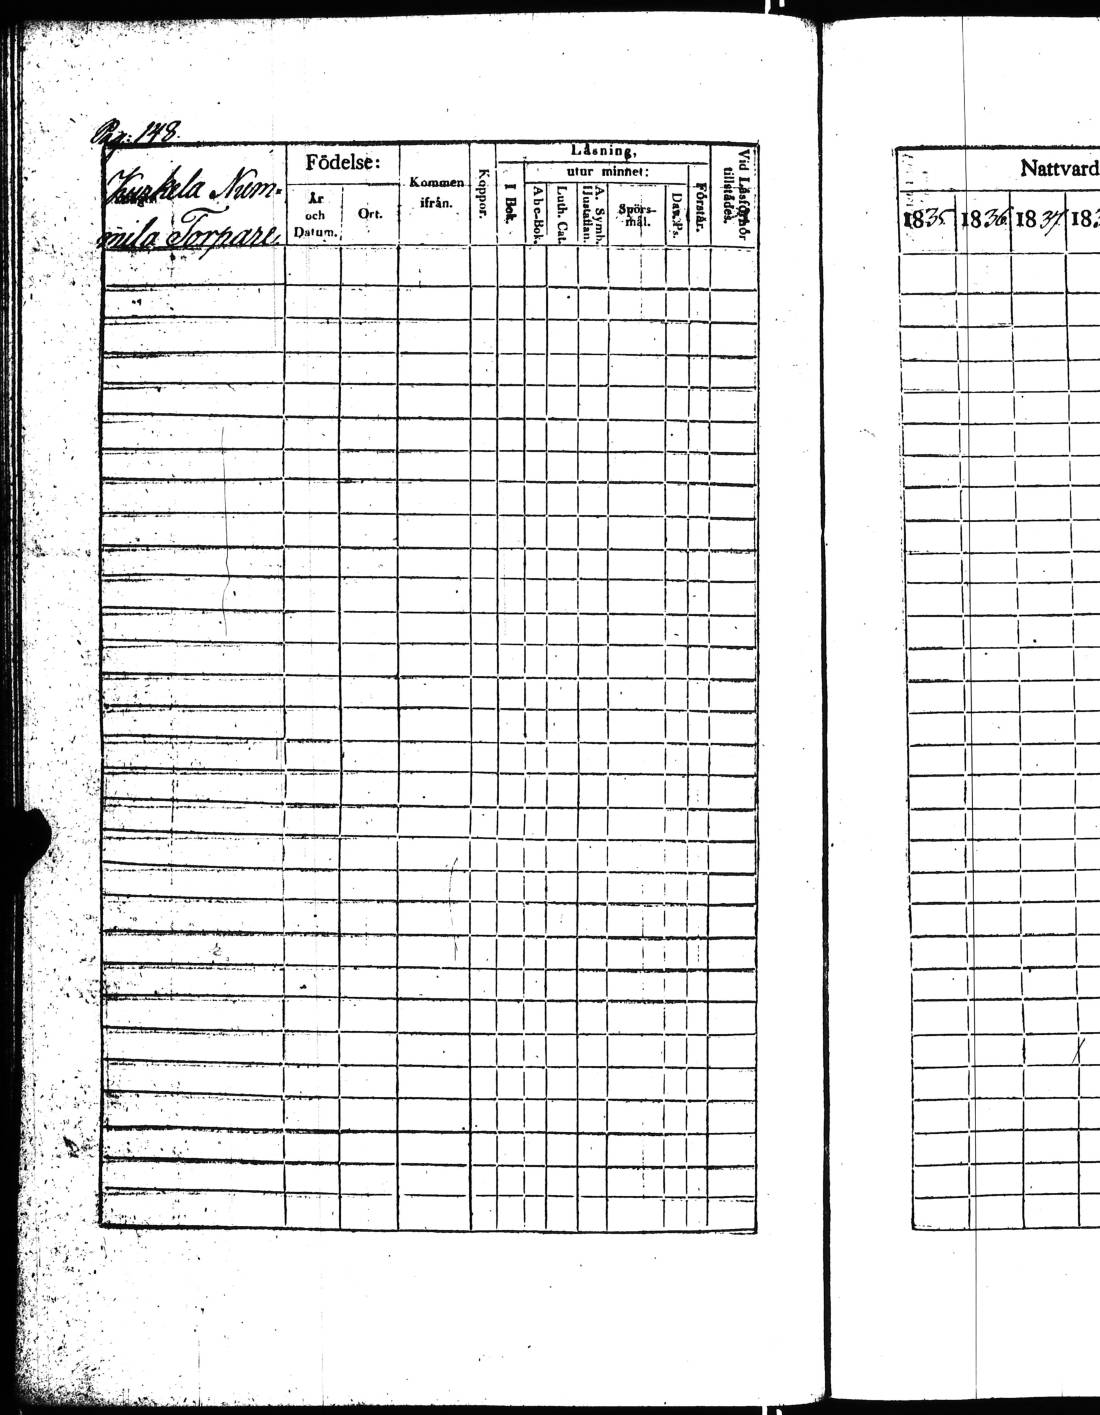 Pag: 148.
Kurkela Num-
mila Torpare.
Födelse:
År
och
Datum.
Ort.
Kommen
ifrån.
Koppor.
Läsning,
utur minnet:
I Bok.
Abc-Bok.
Luth. Cat.
A. Symb.
Hustaflan.
Spörs-
mål.
Dav. Ps.
Förstår.
Vid Läsförhör
tillstädes.
Nattvard
1835 1836 1837 183